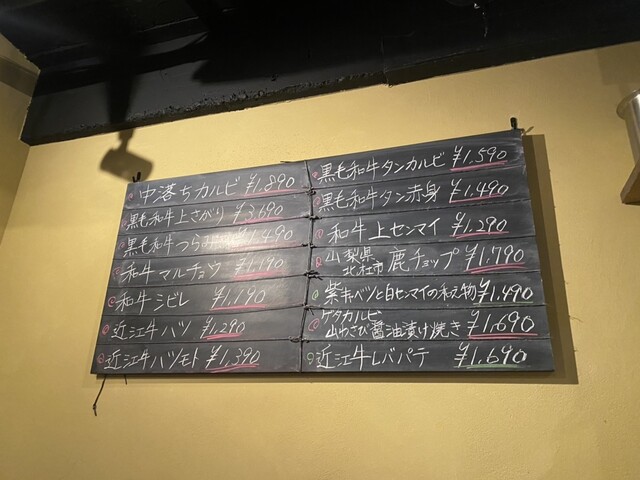 中落ちカルビ ¥1.890
黒毛和牛上さがり ¥3.690
黒毛和牛つらみ ¥1.490
和牛マルチョウ ¥1.190
和牛シビレ ¥1.190
近江牛ハツ ¥1.290
近江牛ハツモト ¥1.390
黒毛和牛タンカルビ ¥1.590
黒毛和牛タン赤身 ¥1.490
和牛上センマイ ¥1.290
山梨県
北杜市 鹿チョップ ¥1.790
紫キャベツと白センマイの和え物 ¥1.490
ゲタカルビ
山わさび醤油漬け焼き ¥1.690
近江牛レバパテ ¥1.690